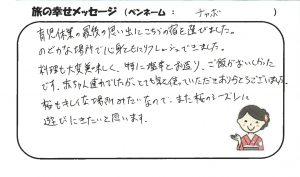 旅の幸せメッセージ（ペンネーム： チャボ ）
育児休業の最後の思い出にこちらの宿を選びました。
のどかな場所で心身ともにリフレッシュできました。
料理も大変美味しく、特に塩辛とお造り、ご飯がおいしかった
です。赤ちゃん連れでしたが、とても気を使っていただきありがとうございました。
桜もきれいな場所みたいなので、また桜のシーズンに
遊びにきたいと思います。